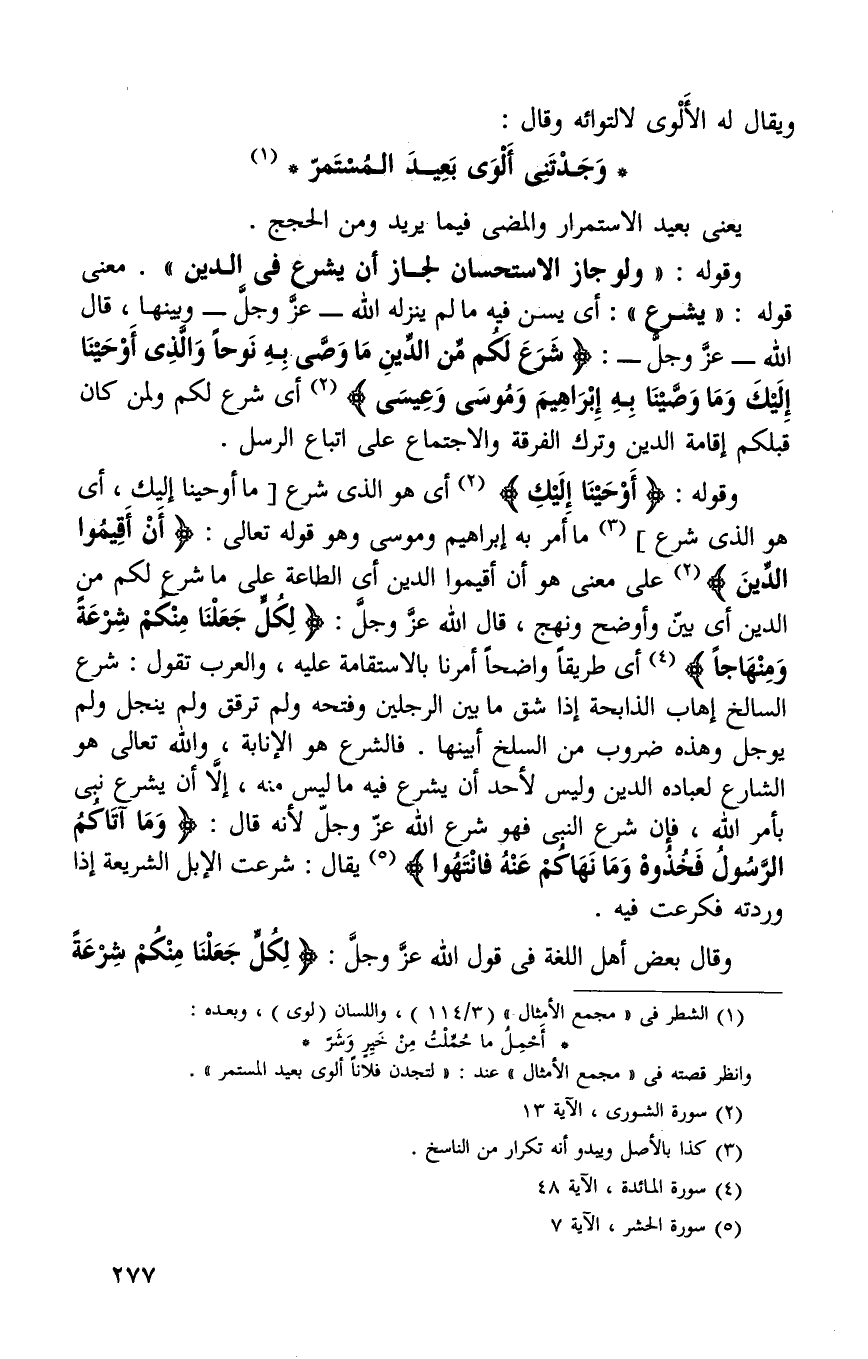 ويقال له الأَلْوى لالتوائه وقال :
* وَجَـدْتَنِى أَلْوَى بَعِيـدَ المُسْتَمرّ * (١)
يعنى بعيد الاستمرار والمضى فيما يريد ومن الحجج .
وقوله : « ولو جاز الاستحسان لجـاز أن يشرع فى الـدين » . معنى
قوله : « يشـرع » : أى يسـن فيه ما لم ينزله الله ــ عزَّ وجلَّ ــ وبينهـا ، قال
الله ــ عزَّ وجلَّ ــ : ﴿ شَرَعَ لَكُم مِّن الدِّينِ مَا وَصَّى بِـهِ نَوحاً وَالَّذِى أَوْحَيْنَا
إِلَيْكَ وَمَا وَصَّيْنَا بِـهِ إِبْرَاهِيمَ وَمُوسَى وَعِيسَى ﴾ (٢) أى شرع لكم ولمن كان
قبلكم إقامة الدين وترك الفرقة والاجتماع على اتباع الرسل .
وقوله : ﴿ أَوْحَيْنَا إِلَيْكِ ﴾ (٢) أى هو الذى شرع [ ما أوحينا إليك ، أى
هو الذى شرع ] (٣) ما أمر به إبراهيم وموسى وهو قوله تعالى : ﴿ أَنْ أَقِيمُوا
الدِّينَ ﴾ (٢) على معنى هو أن أقيموا الدين أى الطاعة على ما شرع لكم من
الدين أى بيّن وأوضح ونهج ، قال الله عزَّ وجلَّ : ﴿ لِكُلٍّ جَعَلْنَا مِنْكُمْ شِرْعَةً
وَمِنْهَاجاً ﴾ (٤) أى طريقاً واضحاً أمرنا بالاستقامة عليه ، والعرب تقول : شرع
السالخ إهاب الذابحة إذا شق ما بين الرجلين وفتحه ولم ترقق ولم ينجل ولم
يوجل وهذه ضروب من السلخ أبينها . فالشرع هو الإنابة ، والله تعالى هو
الشارع لعباده الدين وليس لأحد أن يشرع فيه ما ليس منه ، إلَّا أن يشرع نبى
بأمر الله ، فإن شرع النبى فهو شرع الله عزّ وجلّ لأنه قال : ﴿ وَمَا آتَاكُمُ
الرَّسُولُ فَخُذُوهُ وَمَا نَهَاكُمْ عَنْهُ فَانْتَهُوا ﴾ (٥) يقال : شرعت الإبل الشريعة إذا
وردته فكرعت فيه .
وقال بعض أهل اللغة فى قول الله عزَّ وجلَّ : ﴿ لِكُلٍّ جَعَلْنَا مِنْكُمْ شِرْعَةً
(١) الشطر فى « مجمع الأمثال » (١١٤/٣ ) ، واللسان ( لوى ) ، وبعـده :
* أَحْمِـلُ ما حُمِّلْتُ مِنْ خَيرٍ وَشَرّ *
وانظر قصته فى « مجمع الأمثال » عند : « لتجدن فلاناً ألوى بعيد المستمر » .
(٢) سورة الشورى ، الآية ١٣
(٣) كذا بالأصل ويبدو أنه تكرار من الناسخ .
(٤) سورة المائدة ، الآية ٤٨
(٥) سورة الحشر ، الآية ٧
٢٧٧